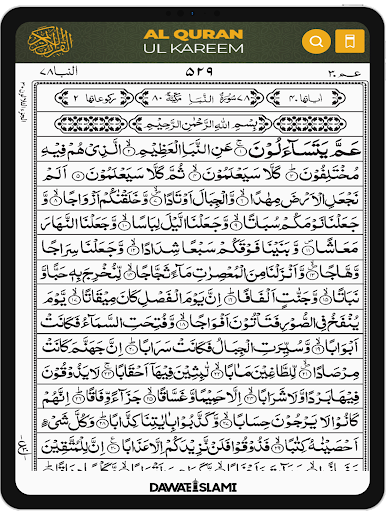 AL QURAN
UL KAREEM
عم ٣٠
٥٢٩
النبا ٧٨
اٰیاتها ٤٠
٧٨ سُوْرَةُ النَّبَاِ مَكِّیَّةٌ ٨٠
ركوعاتها ٢
بِسْمِ اللهِ الرَّحْمٰنِ الرَّحِیْمِ
عَمَّ یَتَسَآءَلُوْنَ ۝۱ عَنِ النَّبَاِ الْعَظِیْمِ ۝۲ الَّذِیْ هُمْ فِیْهِ
مُخْتَلِفُوْنَ ۝۳ كَلَّا سَیَعْلَمُوْنَ ۝۴ ثُمَّ كَلَّا سَیَعْلَمُوْنَ ۝۵ اَلَمْ
نَجْعَلِ الْاَرْضَ مِهٰدًا ۝۶ وَّ الْجِبَالَ اَوْتَادًا ۝۷ وَّ خَلَقْنٰكُمْ اَزْوَاجًا ۝۸ وَّ
جَعَلْنَا نَوْمَكُمْ سُبَاتًا ۝۹ وَّ جَعَلْنَا الَّیْلَ لِبَاسًا ۝۱۰ وَّ جَعَلْنَا النَّهَارَ
مَعَاشًا ۝۱۱ وَّ بَنَیْنَا فَوْقَكُمْ سَبْعًا شِدَادًا ۝۱۲ وَّ جَعَلْنَا سِرَاجًا
وَّهَّاجًا ۝۱۳ وَّ اَنْزَلْنَا مِنَ الْمُعْصِرٰتِ مَآءً ثَجَّاجًا ۝۱۴ لِّنُخْرِجَ بِهٖ حَبًّا وَّ
نَبَاتًا ۝۱۵ وَّ جَنّٰتٍ اَلْفَافًا ۝۱۶ اِنَّ یَوْمَ الْفَصْلِ كَانَ مِیْقَاتًا ۝۱۷ یَّوْمَ
یُنْفَخُ فِی الصُّوْرِ فَتَاْتُوْنَ اَفْوَاجًا ۝۱۸ وَّ فُتِحَتِ السَّمَآءُ فَكَانَتْ
اَبْوَابًا ۝۱۹ وَّ سُیِّرَتِ الْجِبَالُ فَكَانَتْ سَرَابًا ۝۲۰ اِنَّ جَهَنَّمَ كَانَتْ
مِرْصَادًا ۝۲۱ لِّلطَّاغِیْنَ مَاٰبًا ۝۲۲ لّٰبِثِیْنَ فِیْهَاۤ اَحْقَابًا ۝۲۳ لَا یَذُوْقُوْنَ
فِیْهَا بَرْدًا وَّ لَا شَرَابًا ۝۲۴ اِلَّا حَمِیْمًا وَّ غَسَّاقًا ۝۲۵ جَزَآءً وِّفَاقًا ۝۲۶ اِنَّهُمْ
كَانُوْا لَا یَرْجُوْنَ حِسَابًا ۝۲۷ وَّ كَذَّبُوْا بِاٰیٰتِنَا كِذَّابًا ۝۲۸ وَ كُلَّ شَیْءٍ
اَحْصَیْنٰهُ كِتٰبًا ۝۲۹ فَذُوْقُوْا فَلَنْ نَّزِیْدَكُمْ اِلَّا عَذَابًا ۝۳۰ اِنَّ لِلْمُتَّقِیْنَ
DAWATEISLAMI